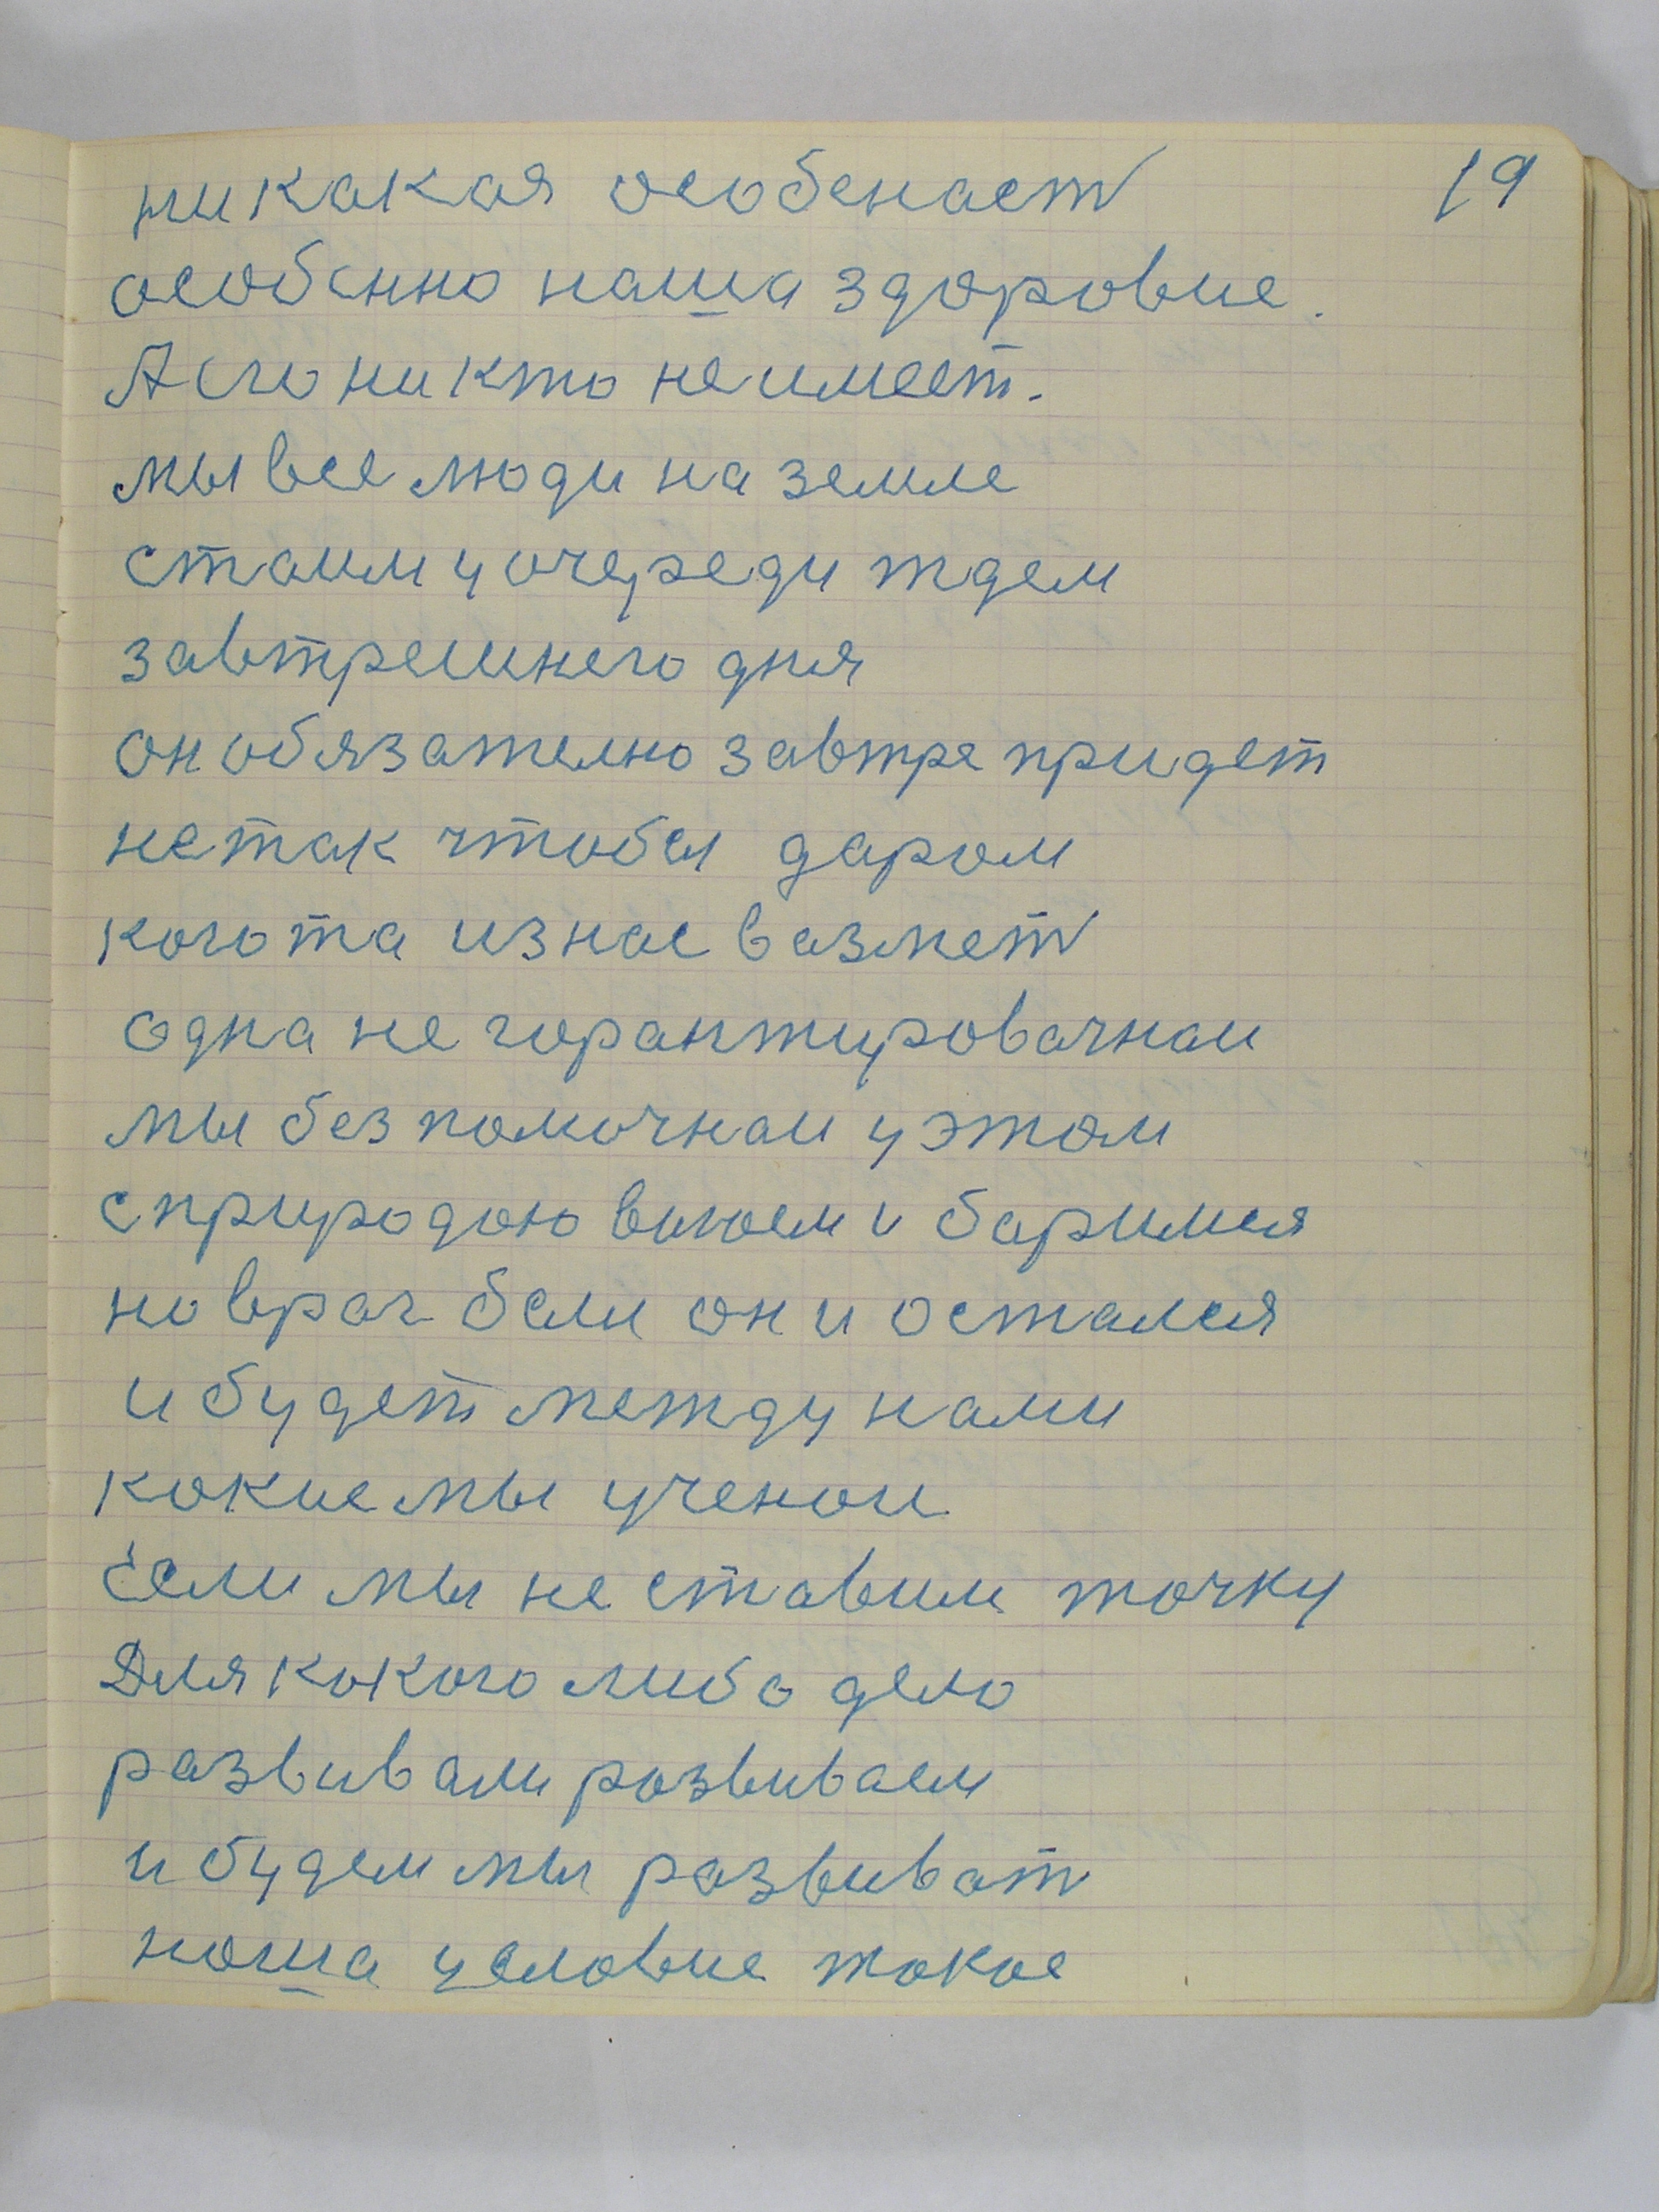 19
никакая особенаст
особенно наша здоровие.
А его ни кто не имеет.
мы все люди на земле
стоим у очереди ждем
завтрешнего дня
он обязателно завтре придет
не так чтобы даром
кого та из нас возмет
одна не гарантированаи
мы безпомочнаи у этом
с природою воюем и боримся
но враг был он и остался
и будет между нами
какие мы ученаи
Если мы не ставим точку
Для какого либо дело
развивали розвиваем
и будем мы развиват
наша условие такое